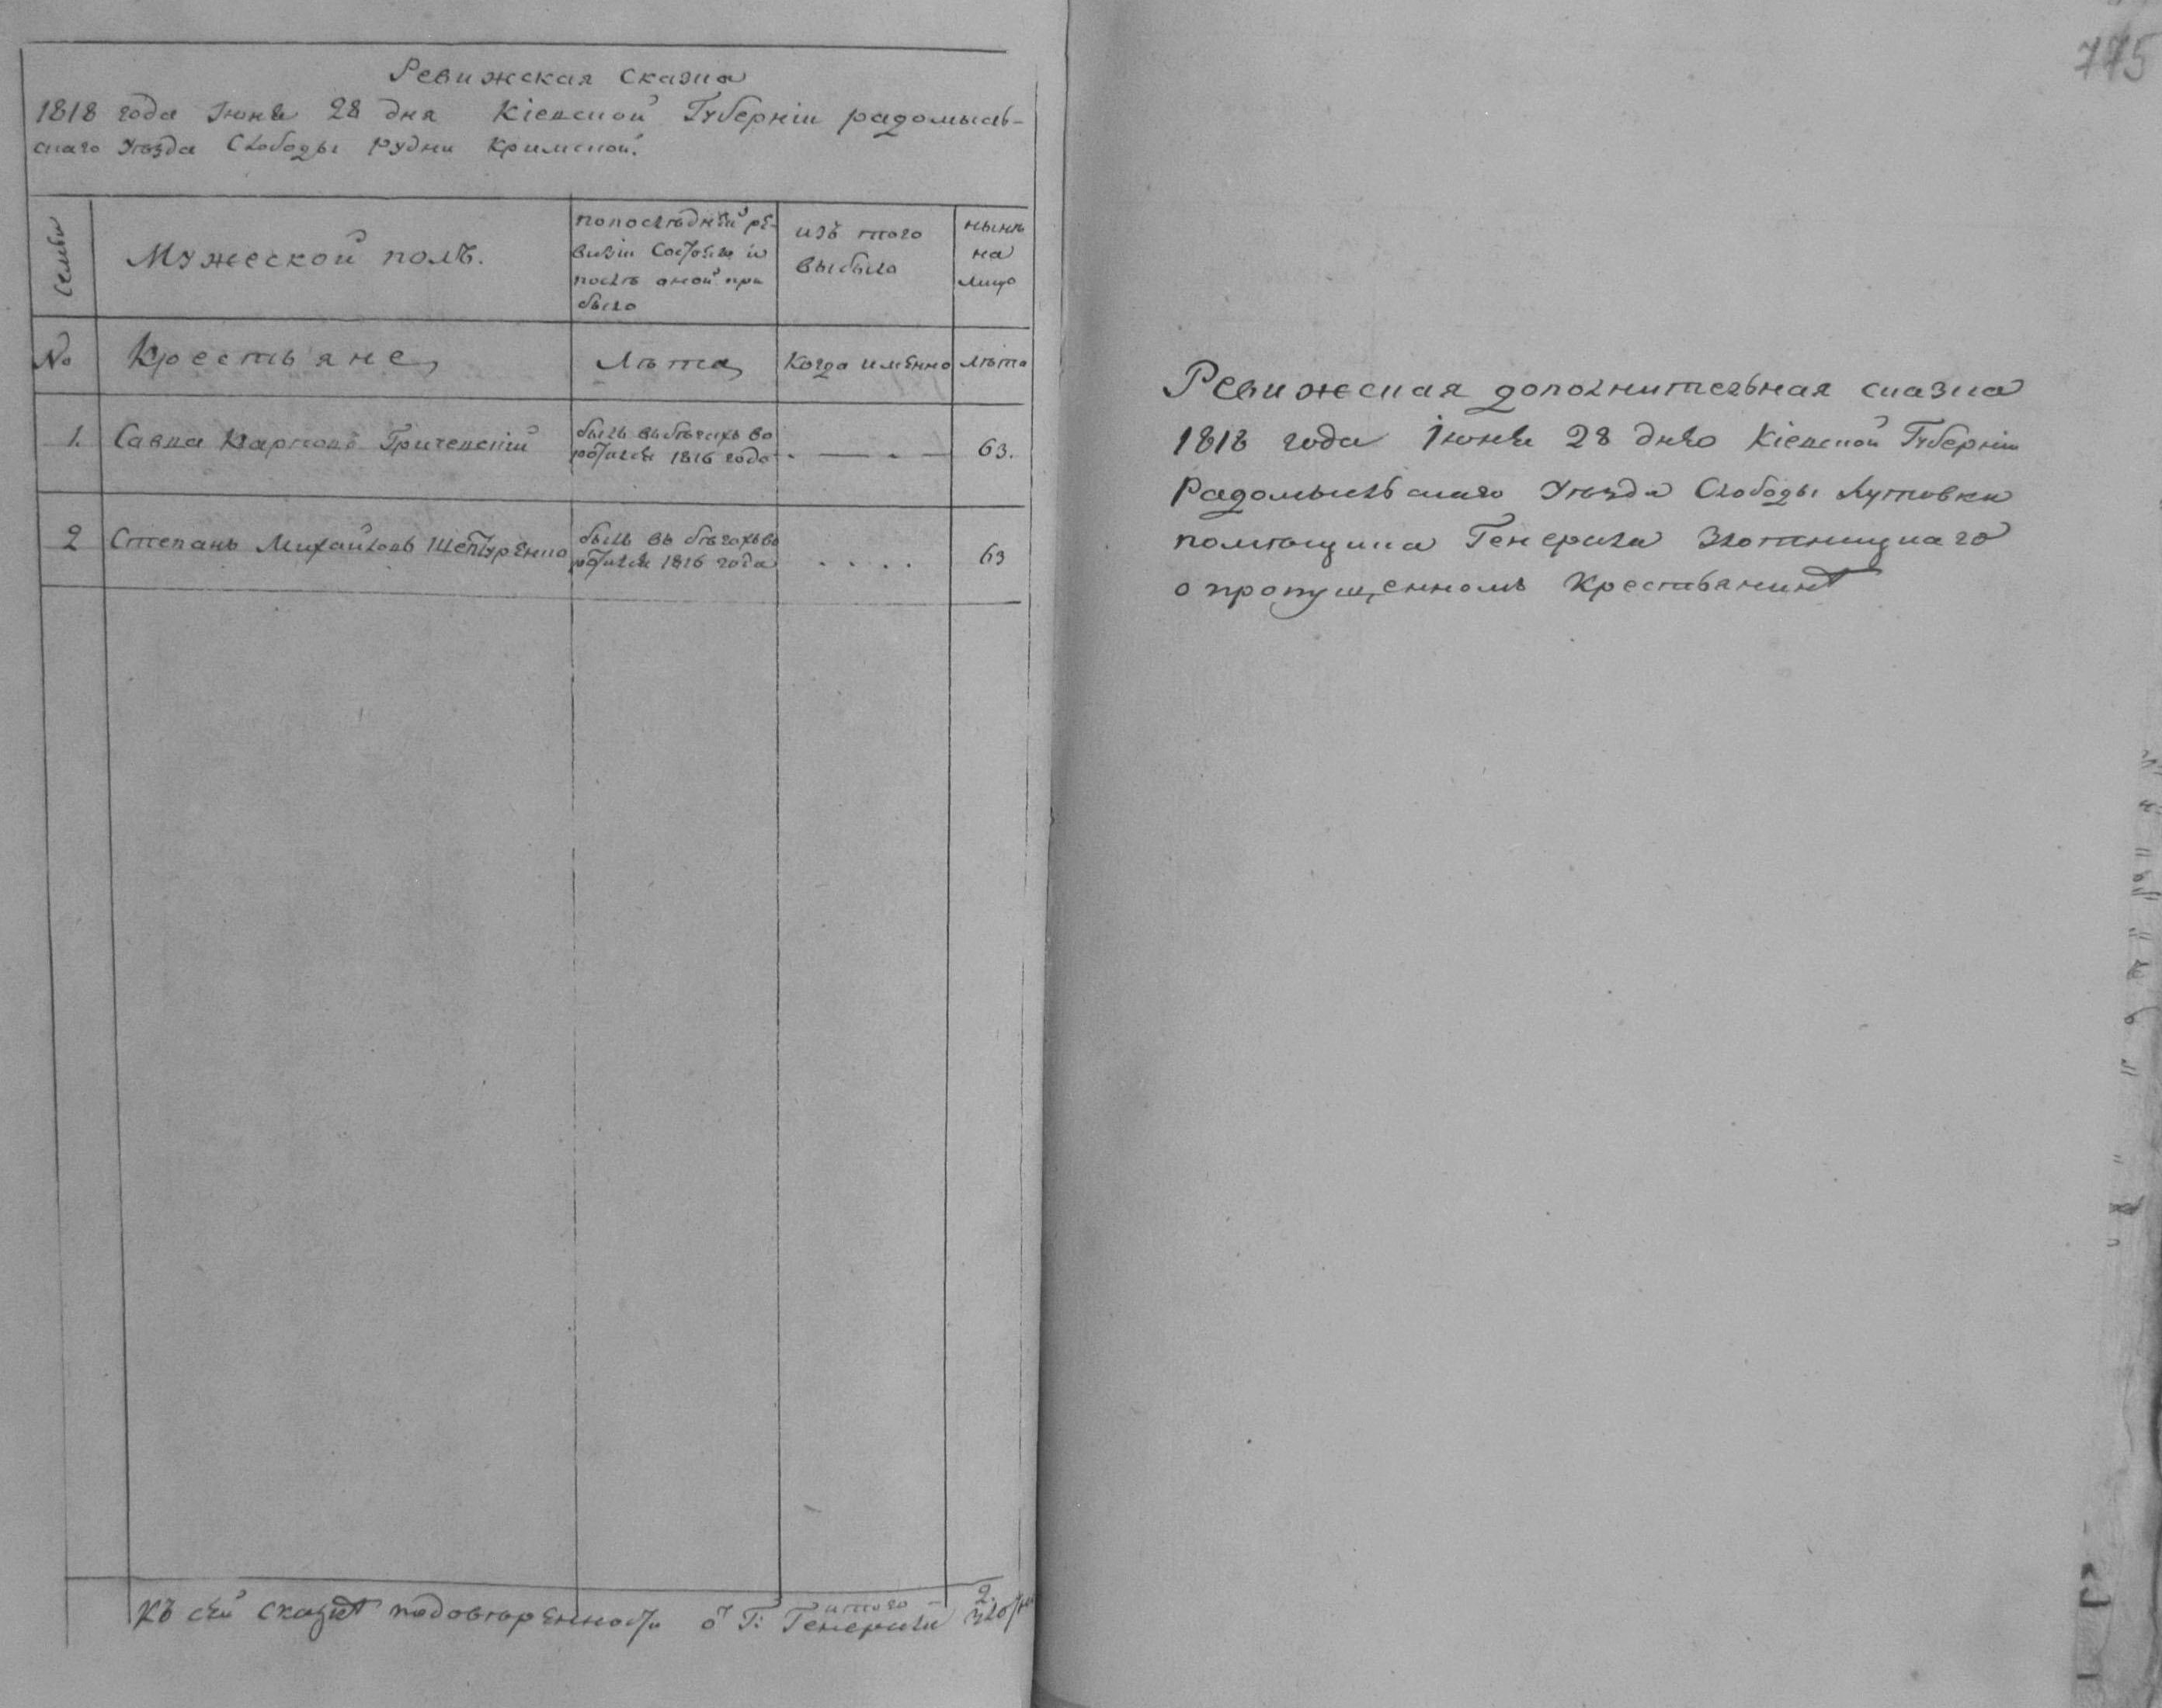 Ревижская Сказка
1818 года Июня 28 дня Кіевской Губерніи радомысль-
скаго Уѣзда Слободы Рудни Кримской.
Семьи
Мужеской полъ.
попослѣдней ре-
визіи Состояло и
послѣ оной при
было
изъ того
выбыло
нынѣ
на
лицо
№
Крестьяне
Лѣта
Когда именно
лѣта
1.
Савка Карповъ Гричевскій
былъ въ бѣгахъ во
ротился 1816 года
63.
2
Степанъ Михайловъ Шепуренко
былъ въ бѣгахъ во
ротился 1816 года
63
итого - 2.
Къ сей сказке подовѣренности о Г: Генерила
775
Ревижская дополнительная сказка
1818 года Июня 28 дня Кіевской Губерніи
Радомысльскаго Уѣзда Слободы Лутовки
помѣщика Генерила Злотницкаго
о пропущенномъ Крестьянинѣ